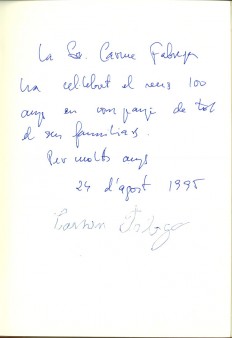 La Sra. Carme Fabrega
ha cellebrat el seus 100
anys en companyia de tot
el seus familiars.
Per molts anys
24 d'agost 1995
Carmen Fabrega